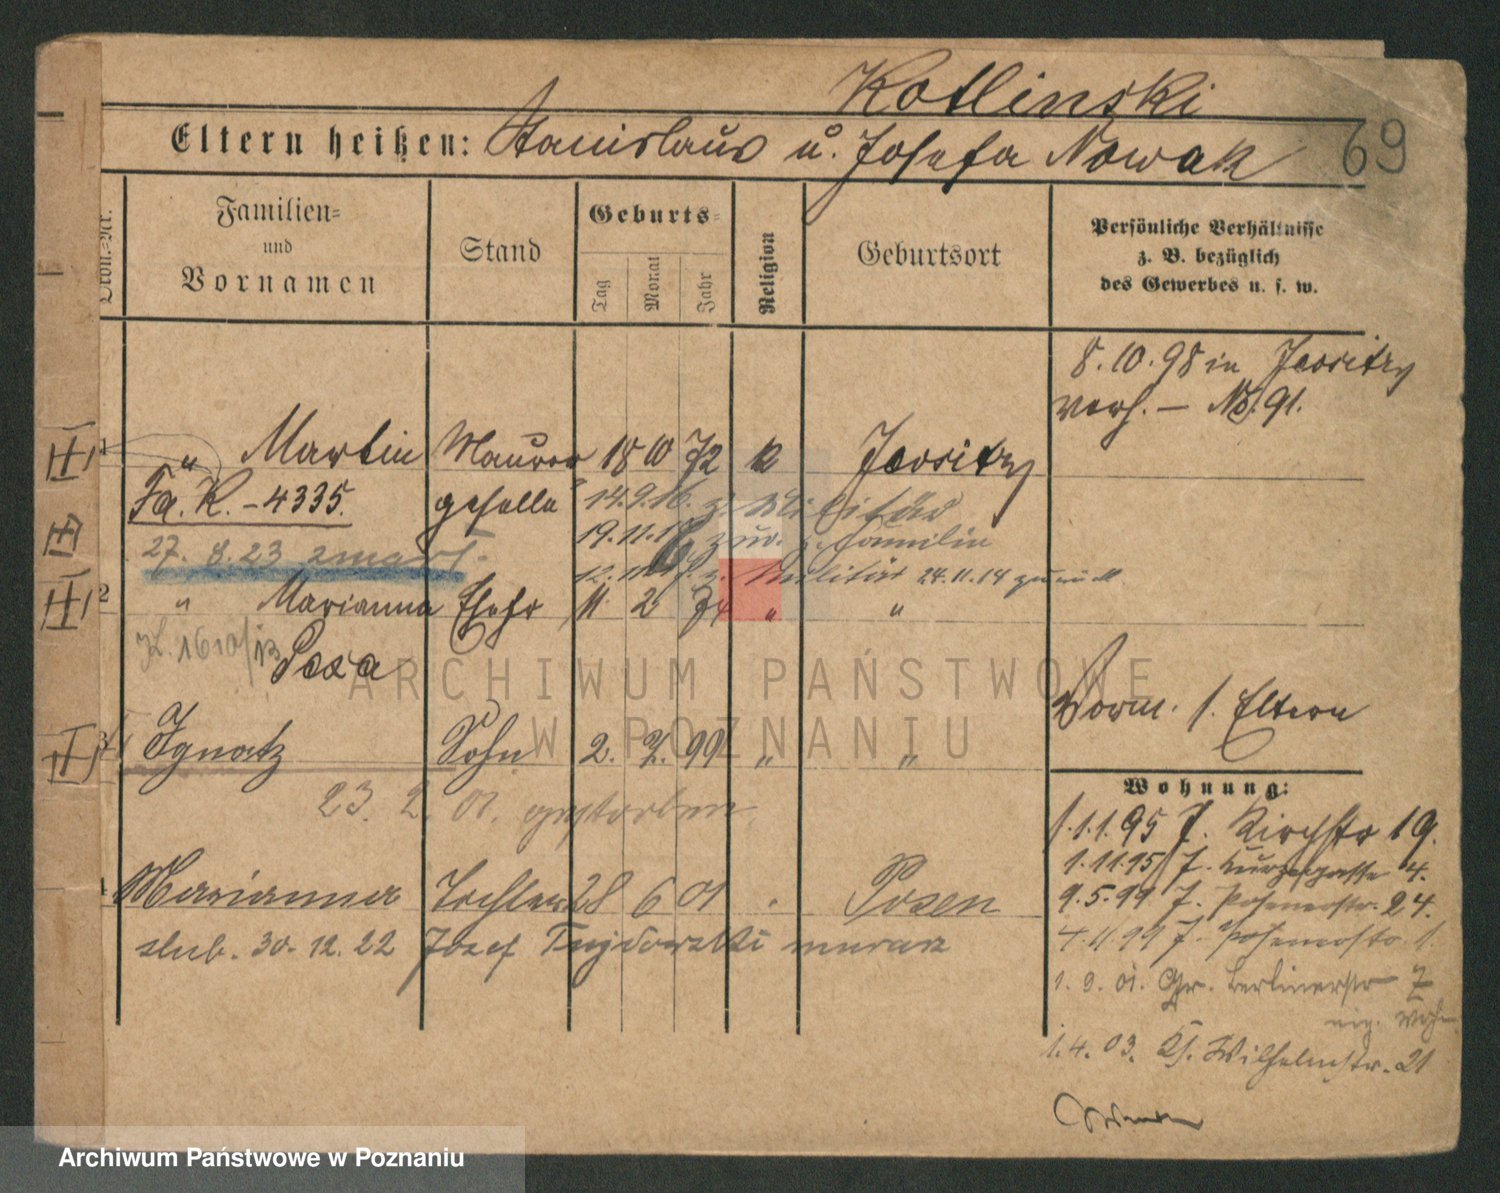 Kotlinski
Eltern heißen: Stanislaus u. Josefa Nowak
69
Ordn.-Nr.
Familien-
und
Vornamen
Stand
Geburts-
Tag
Monat
Jahr
Religion
Geburtsort
Persönliche Verhältnisse
z. B. bezüglich
des Gewerbes u. s. w.
8.10.98 in Jersitz
verh. — No. 91.
1 " Martin Maurer 18 10 72 k Jersitz
Fa. K. - 4335. geselle 14.9.16. z. Militär
19.11.18 zur. z. Familie
27. 8. 23 zmarł.
z. Militär 24.11.14 zurück
2 " Marianna Ehefr 11. 2 74 " "
1610/13 Pexa
Vorm. s. Eltern
3 Ignatz Sohn 2. 7. 99 " "
23. 2. 01. gestorben
Wohnung:
1.1.95 J. Kirchstr 19.
1.11.95 J. Kurzegasse 4.
4 Marianna Tochter 28 6 01 " Posen
9.5.99 J. Posenerstr. 24.
ślub. 30. 12. 22 Józef murarz
4.11.99 J. Posenerstr. 1.
1. 9. 01. Gr. Berlinerstr 7
1. 4. 03. Kl. Wilhelmstr. 21
ARCHIWUM PAŃSTWOWE
W POZNANIU
Archiwum Państwowe w Poznaniu